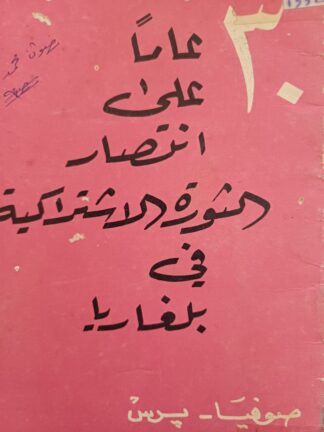 ٣٠
عامًا
على
انتصار
الثورة الاشتراكية
في
بلغاريا
صوفيا - برس